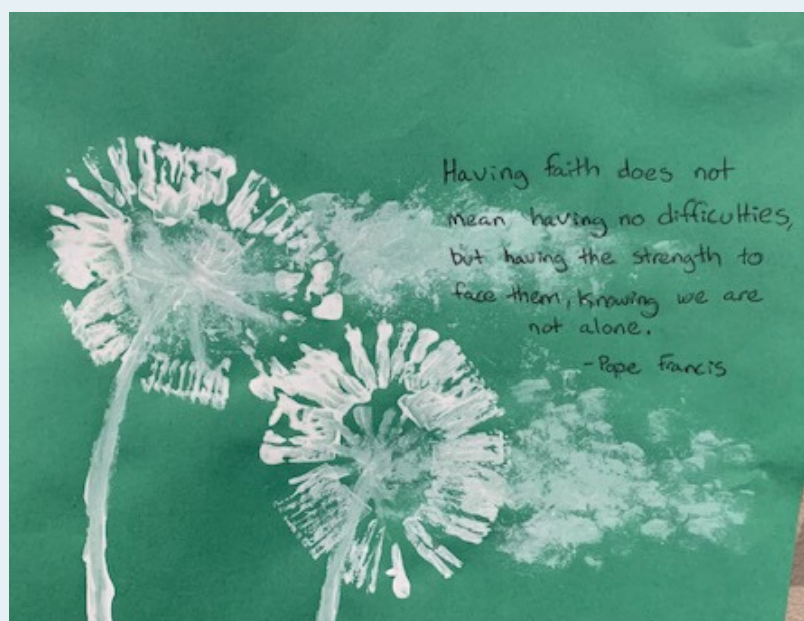 Having faith does not
mean having no difficulties,
but having the strength to
face them, knowing we are
not alone.
-Pope Francis